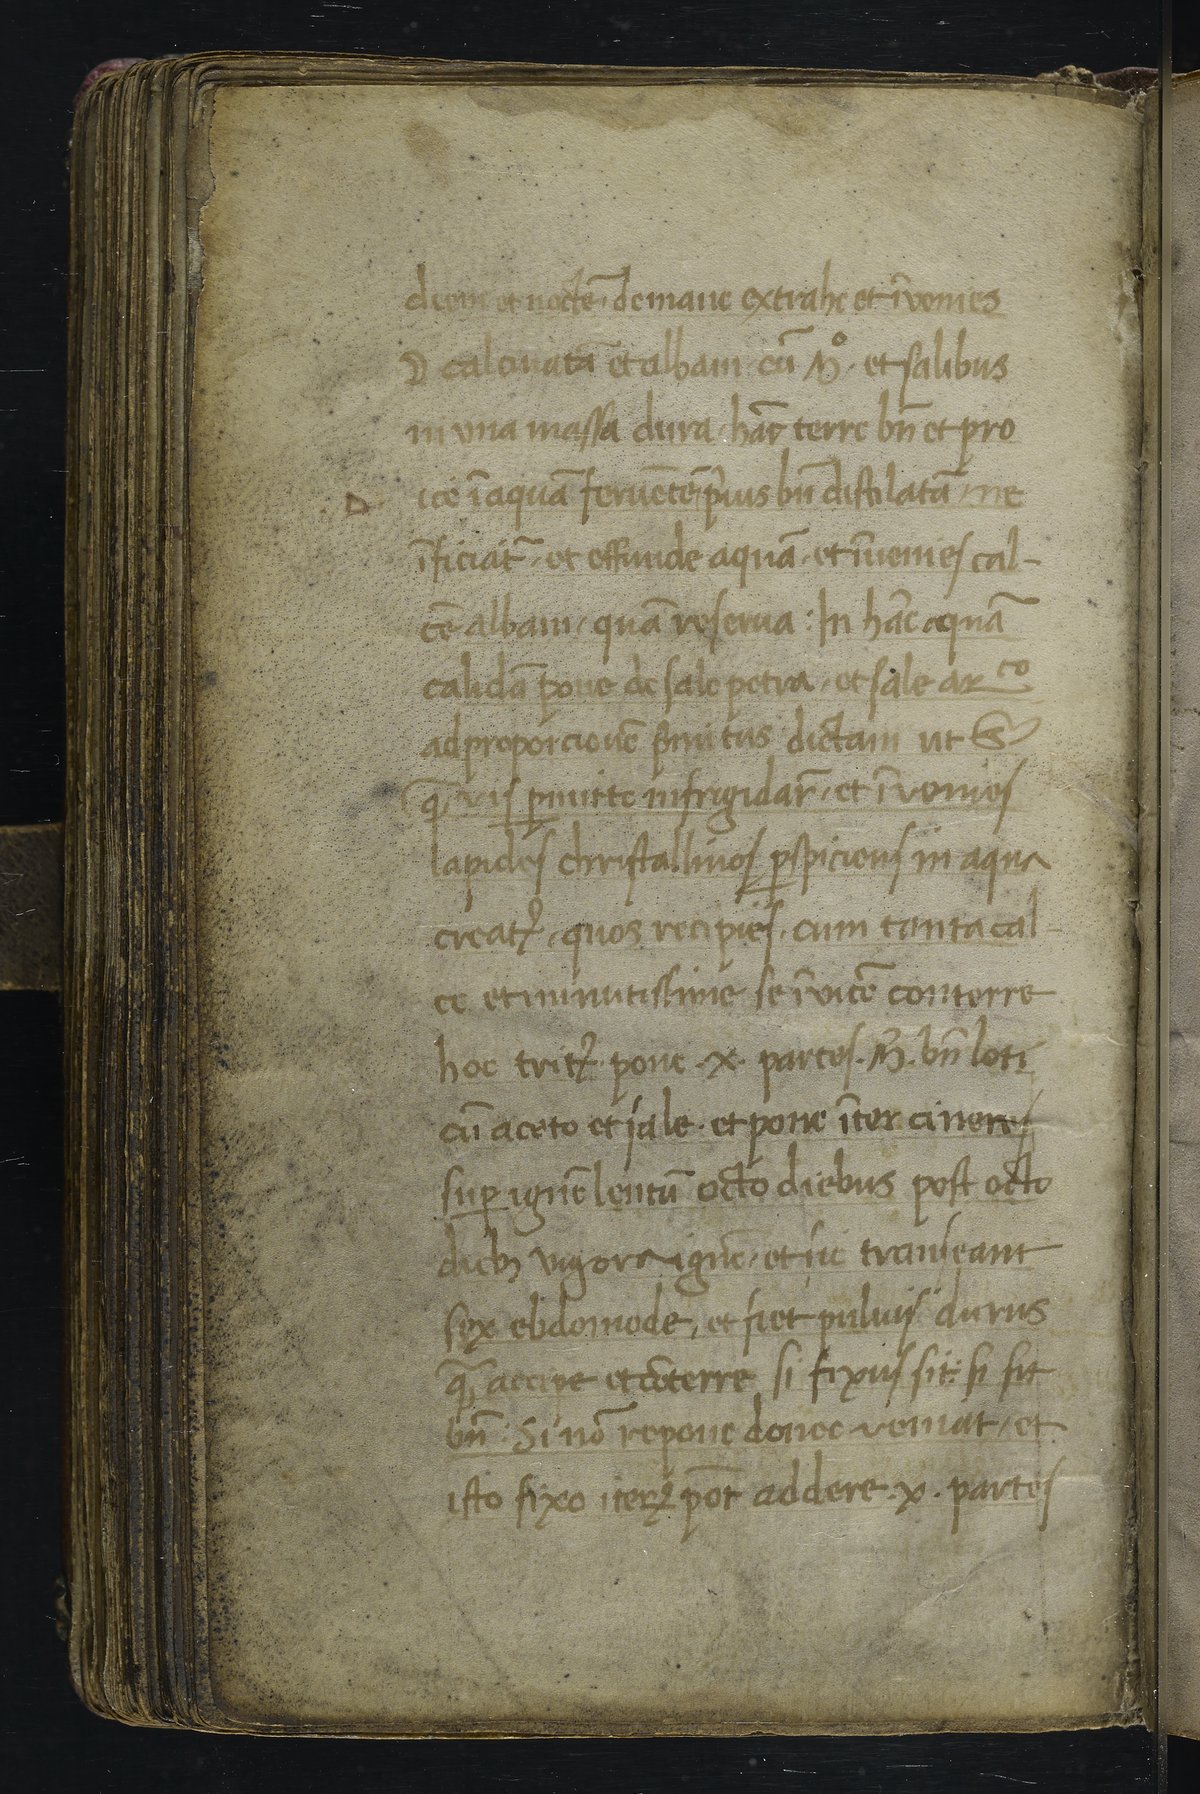 diem et nocte᷃ · de mane extrahe et i᷃venies
D calcinata᷃ et albam · cu᷃ M° · et salibus
in vna massa dura · ha᷃c terre bn᷃ et pro
ice i᷃ aqua᷃ ferue᷃te᷃ p᷃us bn᷃ distilata᷃ · ne
D
i᷃ficiat᷃ · et effunde aqua᷃ · et i᷃uenies cal-
ce᷃ albam · qua᷃ reserua : In ha᷃c aqua᷃
calida᷃ pone de sale petra · et sale ar co
ad proporcione᷃ p᷃mitus dictam ut
q᷃ vis p᷃mitte infrigidar᷃ · et i᷃venies
lapides christallinos ꝑspiciens in aqua
creatꝝ · quos recipies · cum tanta cal-
ce et minutissime se i᷃vice᷃ conterre
hoc tritꝝ pone · x · partes · M᷃ · bn᷃ loti
cu᷃ aceto et sale · et pone i᷃ter cineres
suꝑ igne᷃ lentu᷃ octo diebus post octo
dieb; vigora igne᷃ · et sic transeant
sex ebdomode, et fiet puluis durus
q᷃ accipe et co᷃terre si fixus sit : si sit
bn᷃ : Si no᷃ repone donec veniat · et
isto fixo iterꝝ po᷃t addere · x · partes